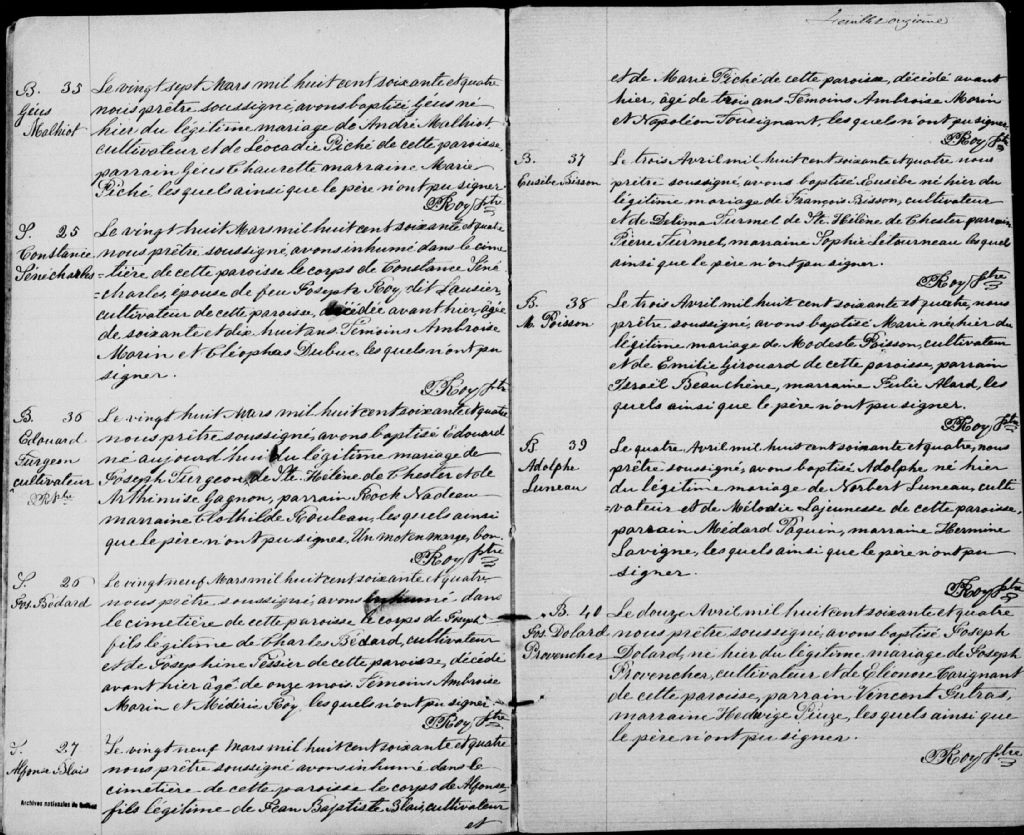 B. 35
Géus
Malhiot
Le vingt sept Mars mil huit cent soixante et quatre
nous prêtre soussigné, avons baptisé Géus né
hier du légitime mariage de André Malhiot,
cultivateur et de Léocadie Piché de cette paroisse,
parrain Géus Chaurette marraine Marie
Piché, les quels ainsi que le père n'ont pu signer.
P Roy ptre
S. 25
Constance
Sénécharles
Le vingt huit Mars mil huit cent soixante et quatre
nous prêtre soussigné, avons inhumé dans le cime
=tière de cette paroisse le corps de Constance Séné
=charles, épouse de feu Joseph Roy dit Lausier,
cultivateur de cette paroisse, décédée avant hier, âgée
de soixante et dix huit ans Témoins Ambroise
Morin et Cléophas Dubuc, les quels n'ont pu
signer.
P Roy ptre
B. 36
Edouard
Turgeon
cultivateur
P.R. ptre
Le vingt huit Mars mil huit cent soixante et quatre
nous prêtre soussigné, avons baptisé Edouard
né aujourd'hui du légitime mariage de
Joseph Turgeon, de Ste Hélène de Chester et de
Arthémise Gagnon, parrain Rock Nadeau
marraine Clothilde Rouleau, les quels ainsi
que le père n'ont pu signer. Un mot en marge, bon.
P Roy ptre
S. 26
Jos. Bédard
Le vingt neuf Mars mil huit cent soixante et quatre
nous prêtre soussigné, avons inhumé dans
le cimetière de cette paroisse le corps de Joseph
fils légitime de Charles Bédard, cultivateur
et de Josephine Tessier de cette paroisse, décédé
avant hier âgé de onze mois. Témoins Ambroise
Morin et Médéric Roy, les quels n'ont pu signer
P Roy ptre
S. 27
Alfonse Blais
Le vingt neuf Mars mil huit cent soixante et quatre
nous prêtre soussigné avons inhumé dans le
cimetière de cette paroisse le corps de Alfonse
fils légitime de Jean Baptiste Blais, cultivateur
et
Archives nationales du Québec
Feuille onzième
et de Marie Piché de cette paroisse, décédé avant
hier, âgé de trois ans Témoins Ambroise Morin
et Napoléon Tousignant, les quels n'ont pu signer
P Roy ptre
B. 37
Eusèbe Bisson
Le trois Avril mil huit cent soixante et quatre nous
prêtre soussigné, avons baptisé Eusèbe né hier du
légitime mariage de François Bisson, cultivateur
et de Delima Turmel de Ste Hélène de Chester parrain
Pierre Turmel, marraine Sophie Letourneau les quels
ainsi que le père n'ont pu signer.
P Roy ptre
B. 38
M. Poisson
Le trois Avril mil huit cent soixante et quatre, nous
prêtre soussigné, avons baptisé Marie née hier du
légitime mariage de Modeste Poisson, cultivateur
et de Emilie Girouard de cette paroisse, parrain
Israël Beauchêne, marraine Julie Alard, les
quels ainsi que le père n'ont pu signer.
P Roy ptre
B 39
Adolphe
Luneau
Le quatre Avril mil huit cent soixante et quatre, nous
prêtre soussigné, avons baptisé Adolphe né hier
du légitime mariage de Norbert Luneau, culti
=vateur et de Mélodie Lajeunesse de cette paroisse,
parrain Médard Paquin, marraine Hermine
Lavigne, les quels ainsi que le père n'ont pu
signer.
P Roy ptre
B. 40
Jos. Dolard
Provencher
Le douze Avril mil huit cent soixante et quatre
nous prêtre soussigné, avons baptisé Joseph
Dolard, né hier du légitime mariage de Joseph
Provencher, cultivateur et de Eléonore Carignant
de cette paroisse, parrain Vincent Dutras,
marraine Hedwige Pieuze, les quels ainsi que
le père n'ont pu signer.
P Roy ptre